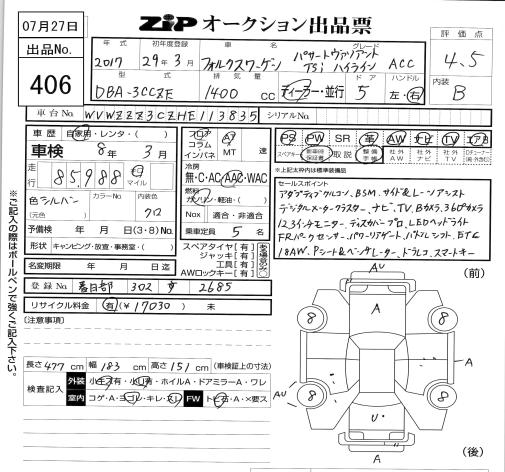 07月27日
ZIP オークション出品票
出品No.
406
評価点
4.5
内装
B
年式 初年度登録 車名 グレード
2017 29年3月 フォルクスワーゲン パサートヴァリアント TSi ハイライン ACC
型式 排気量 ドア ハンドル
DBA-3CCZE 1400 cc ディーラー・並行 5 左・右
車台No. WVWZZZ3CZHE113835 シリアルNo.
車歴 自家用・レンタ・( )
車検 8年 3月
走行 85,988 km マイル
色 シルバー カラーNo. 内装色
(元色) クロ
予備検 年 月 日 (3・8) No.
形状 キャンピング・放宣・事務室・( )
名変期限 年 月 日迄
フロア AT
コラム
インパネ MT 速
冷房
無・C・AC・AAC・WAC
燃料
ガソリン・軽油・( )
Nox 適合・非適合
乗車定員 5 名
スペアタイヤ[有]
ジャッキ[有]
工具[有]
AWロックキー[有]
PS PW SR 革 AW ナビ TV エアB
スペアキー 新車時保証書 取説 整備手帳 社外AW 社外ナビ 社外TV
※上記○枠内は標準装備品
セールスポイント
アダプティブクルコン、BSM、サイド&レーンアシスト
デジタルメータークラスター、ナビ、TV、Bカメラ、360°カメラ
12.3インチモニター、ディスカバープロ、LEDヘッドライト
FRパークセンサー、パワーリアゲート、パドルシフト、ETC
18AW、Pシート&ベンチレーター、ドラレコ、スマートキー
登録No. 春日部 302 す 2685
リサイクル料金 有(¥17030) 未
(注意事項)
長さ 477cm 幅 183cm 高さ 151cm (車検証上の寸法)
検査記入 外装 小キズ有・小凹有・ホイルA・ドアミラーA・ワレ
室内 コゲ・A・ヨゴレ・キレ・スレ FW トビ石・A・×要ス
※ご記入の際はボールペンで強くご記入下さい。
(前)
AU
A
8
8
A
A
AU
8
8
U
A
(後)